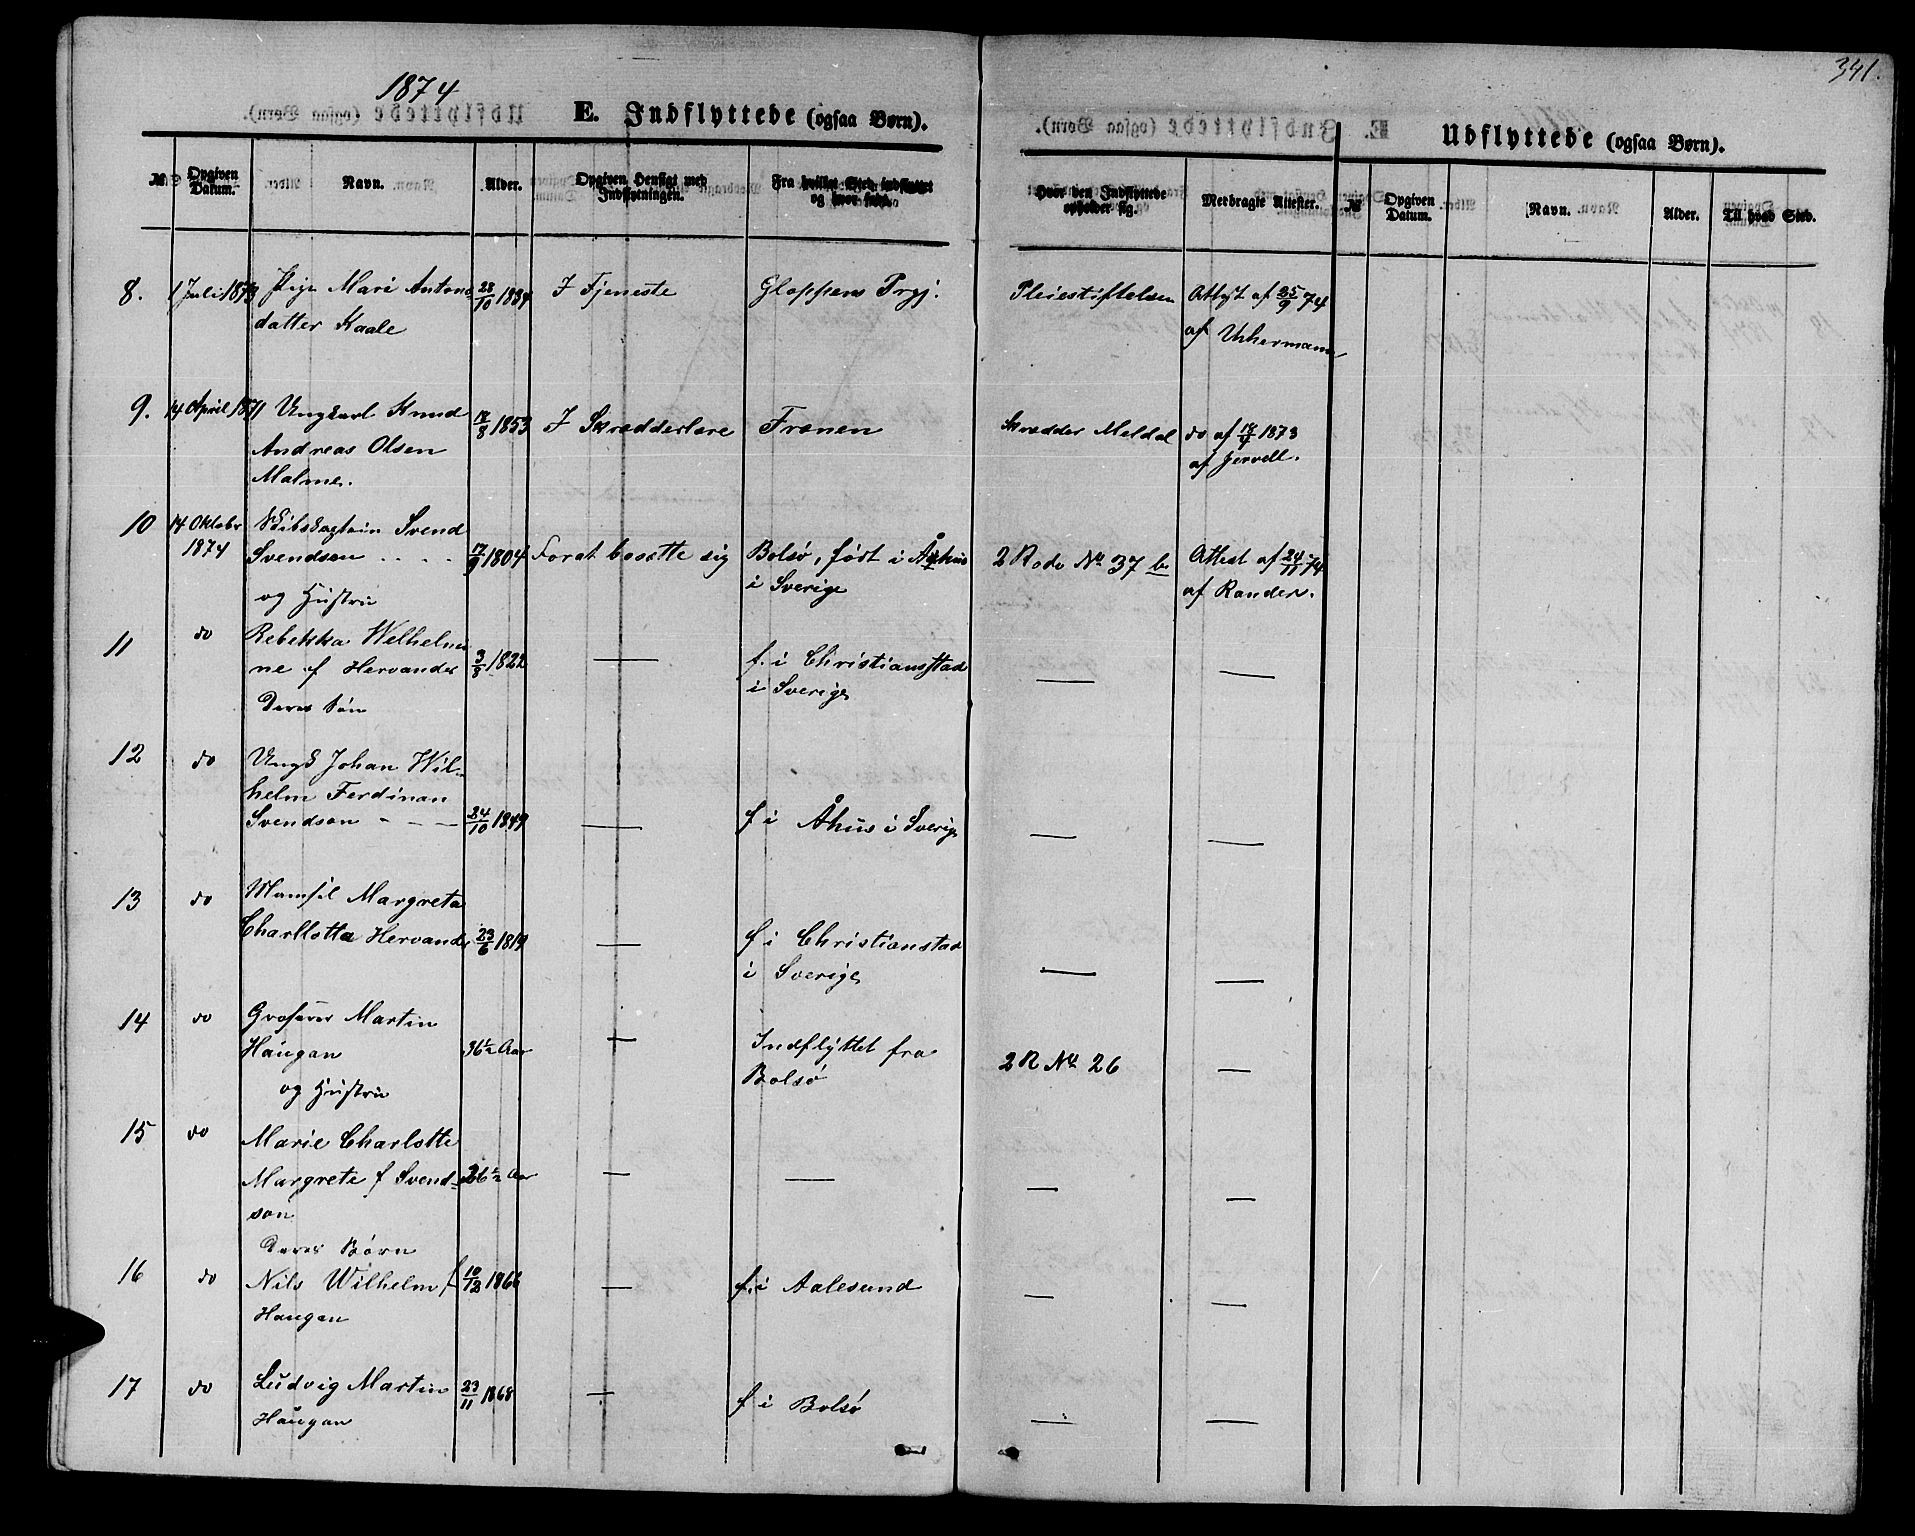 1874
341.
E. Indflyttede (ogsaa Børn).
Udflyttede (ogsaa Børn).
№ Opgiven Datum. Navn. Alder. Opgiven Hensigt med Indflytningen. Fra hvilket Sted indflyttet og hvor født. Hvor den Indflyttede opholder sig. Medbragte Attester. № Opgiven Datum. Navn. Alder. Til hvad Sted.
8. 1 Juli 1873 Pige Mari Antons 23/10 1834 I Tjeneste Gloppens Prgj. Pleiestiftelsen Attest af 25/9 74
datter Kaale af Uchermann
9. 14 April 1871 Ungkarl Knud 12/8 1853 I Skrædderlære Frænen Skrædder Meldal do af 18/9 1873
Andreas Olsen af Jervell.
Malme.
10 14 Oktober Skibskaptein Svend
1874 Svendson 17/9 1804 For at bosætte sig Bolsø, født i Åhus 2 Rode No 37 b Attest af 24/11 74
og Hustru i Sverige af Rander.
11 do Rebekka Wilhelmi
ne f Hervander 3/8 1822 — f. i Christiansstad — —
Deres Søn i Sverige
12 do Ungk Johan Wil-
helm Ferdinan
Svendson 24/10 1849 — f i Åhus i Sverig — —
13 do Mamsel Margreta
Charllotta Hervander 23/6 1819 — f i Christianstad — —
i Sverige
14 do Grosserer Martin
Haugan 36½ Aar — Indflyttet fra 2 R No 26 —
og Hustru Bolsø
15 do Marie Charlotte
Margrete f Svend- 26½ Aar — — — —
son
Deres Børn
16 do Nils Wilhelm f 10/12 1866 — f. i Aalesund — —
Haugan
17 do Ludvig Martin 23/11 1868 — f i Bolsø — —
Haugan